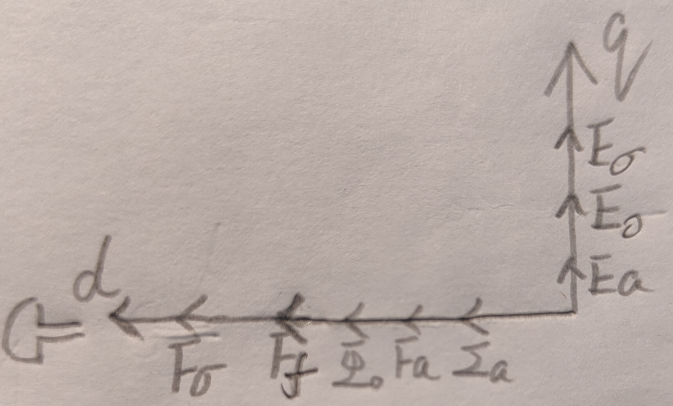 q
Eσ
Eσ
Ea
d
Fσ Ff Φ₀ Fa